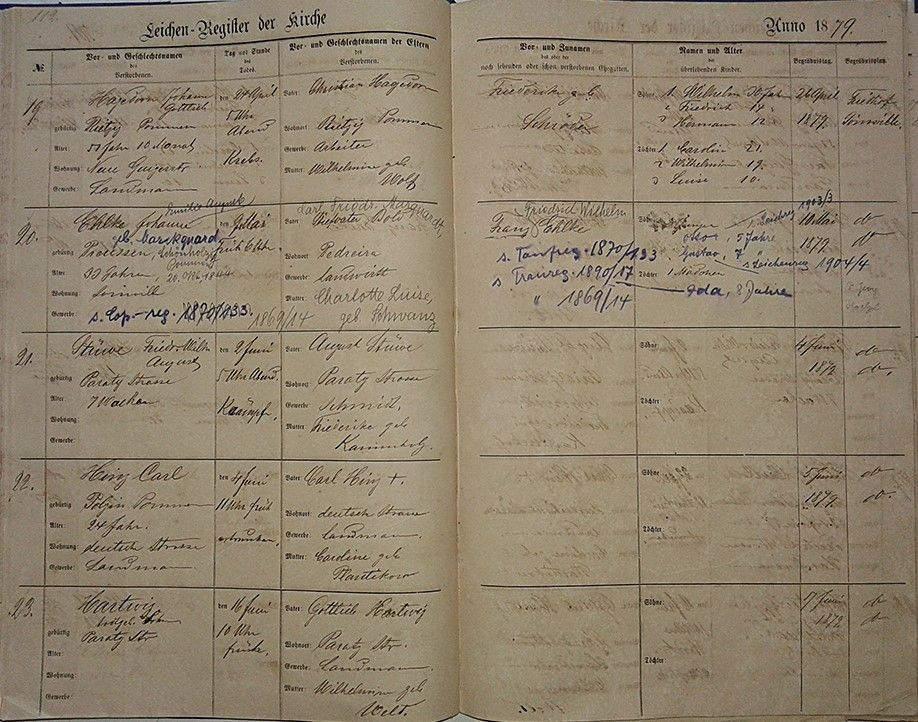 Leichen-Register der Kirche
Anno 1879.
№
Vor- und Geschlechtsnamen
des
Verstorbenen.
Tag und Stunde
des
Todes.
Vor- und Geschlechtsnamen der Eltern
des
Verstorbenen.
Vor- und Zunamen
des oder der
noch lebenden oder schon verstorbenen Ehegatten.
Namen und Alter
der
überlebenden Kinder.
Begräbnistag.
Begräbnisplatz.
19.
Johann
Gottlieb
gebürtig Pommern
Alter: 51 Jahr 10 Monat
Wohnung: Neue
Gewerbe: Landmann
den 24 April
5 Uhr
Abend
Krebs.
Vater: Christian Hagedorn
Wohnort: Pommern
Gewerbe: Arbeiter
Mutter: Wilhelmine geb
Wolf
Friederike geb.
Schröder
Söhne: 1. Wilhelm 30 Jahr
2 Friedrich 14
3 Hermann 12
Töchter: 1. Carolin 21.
2 Wilhelmine 19.
3 Luise 10.
26 April
1879.
Friedhof
20.
Emilie Auguste
Ehlke Johanne
geb.
gebürtig Preussen,
Alter: 33 Jahren,
Wohnung:
Gewerbe: s. Cop.-reg. 1870/133.
1869/14
früh 6 Uhr
Carl Friedr. Marquardt
Vater:
Wohnort: Pedreira
Gewerbe: Landwirth
Mutter: Charlotte Luise,
geb. Schwanz
Friedrich Wilhelm
Franz Ehlke
s. Taufreg. 1870/133
s. Traureg. 1890/17
" 1869/14
Söhne:
Otto, 5 Jahre
Gustav, 7
s. Leichenreg. 1904/4
Töchter: 1 Mädchen
Ida, 8 Jahre
1903/3
10 Mai
1879
do
do
21.
Stüwe Friedr. Wilh.
August
gebürtig Paraty Strasse
Alter: 7 Wochen
Wohnung:
Gewerbe:
den 2 Juni
5 Uhr Abend.
Krämpf.
Vater: August Stüwe
Wohnort: Paraty Strasse
Gewerbe: Schmidt.
Mutter: Friederike geb
Söhne:
Töchter:
4 Juni
1879
do
do.
22.
Hinz Carl
gebürtig Pommern
Alter: 24 Jahr.
Wohnung: deutsche Strasse
Gewerbe: Landmann
den 4 Juni
11 Uhr früh
ertrunken.
Vater: Carl Hinz +.
Wohnort: deutsch Strasse
Gewerbe: Landmann.
Mutter: Caroline geb
Plantikow
Söhne:
Töchter:
5 Juni
1879.
do
do.
23.
Hartwig
gebürtig Paraty Str
Alter:
Wohnung:
Gewerbe:
den 16 Juni
10 Uhr
früh.
Vater: Gottlieb Hartwig
Wohnort: Paraty Str.
Gewerbe: Landmann.
Mutter: Wilhelmine geb
Söhne:
Töchter:
17 Juni
1879
do
do